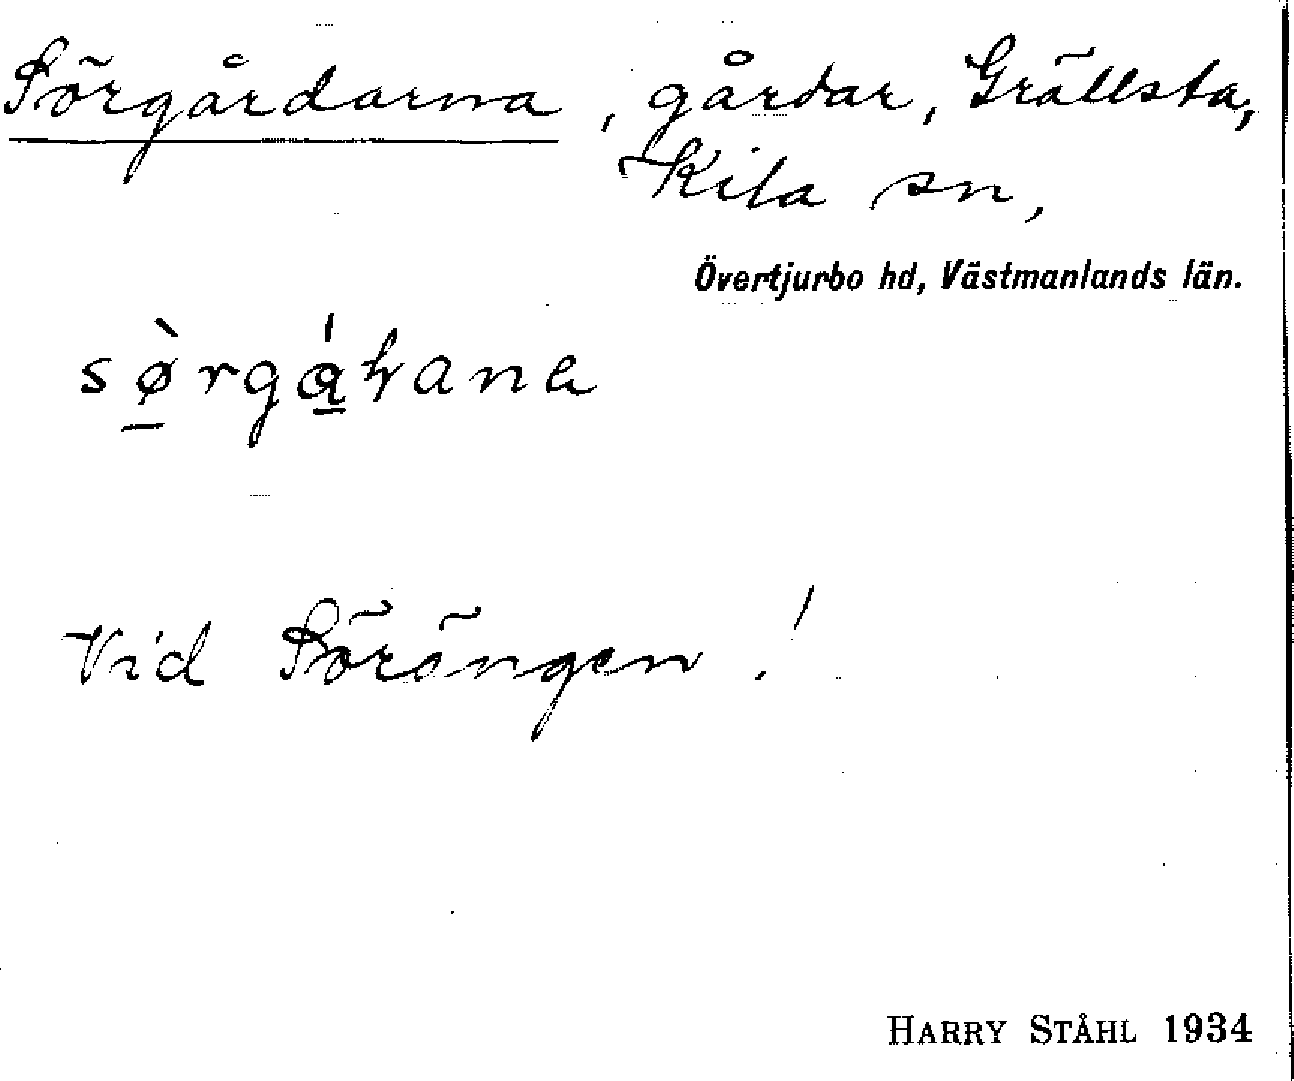 Sörgårdarna, gårdar, Grällsta,
Kila sn,
Övertjurbo hd, Västmanlands län.
Vid Sörängen!
HARRY STÅHL 1934